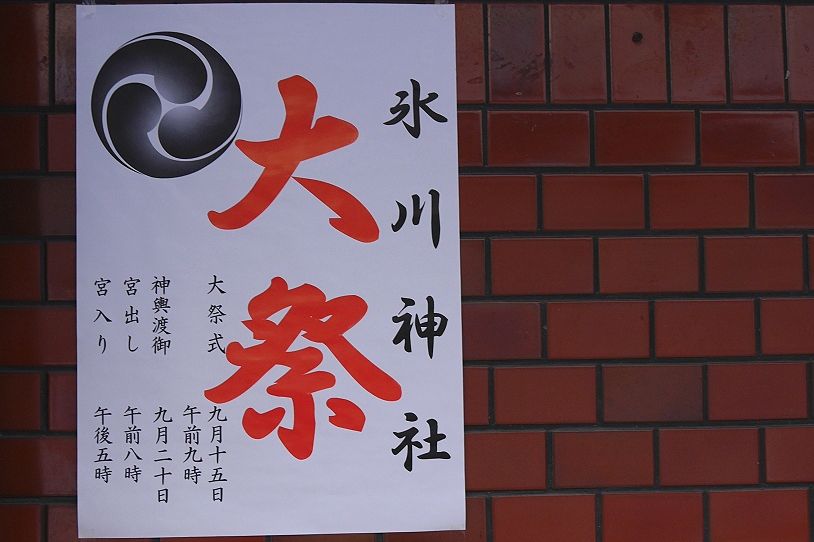 氷川神社
大祭
大祭式 九月十五日
午前九時
神輿渡御 九月二十日
宮出し 午前八時
宮入り 午後五時